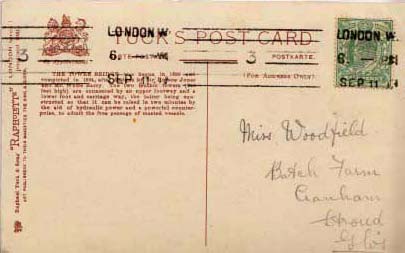 LONDON.W.
6. PM
SEP 11
3
TUCK'S POST CARD
CARTE POSTALE
POSTKARTE.
(FOR ADDRESS ONLY)
LONDON.W.
6. PM
SEP 11
3
THE TOWER BRIDGE was begun in 1886 and
completed in 1894, by Sir Horace Jones
and Mr. Wolfe Barry. The two
feet high) are connected by an upper footway and a
lower foot and carriage way, the latter being con-
structed so that it can be raised in two minutes by
the aid of hydraulic power and a powerful counter-
poise, to admit the free passage of masted vessels.
Raphael Tuck & Sons' "RAPHOTYPE" LONDON
Miss Woodfield
Farm
Cranham
Stroud
Glos